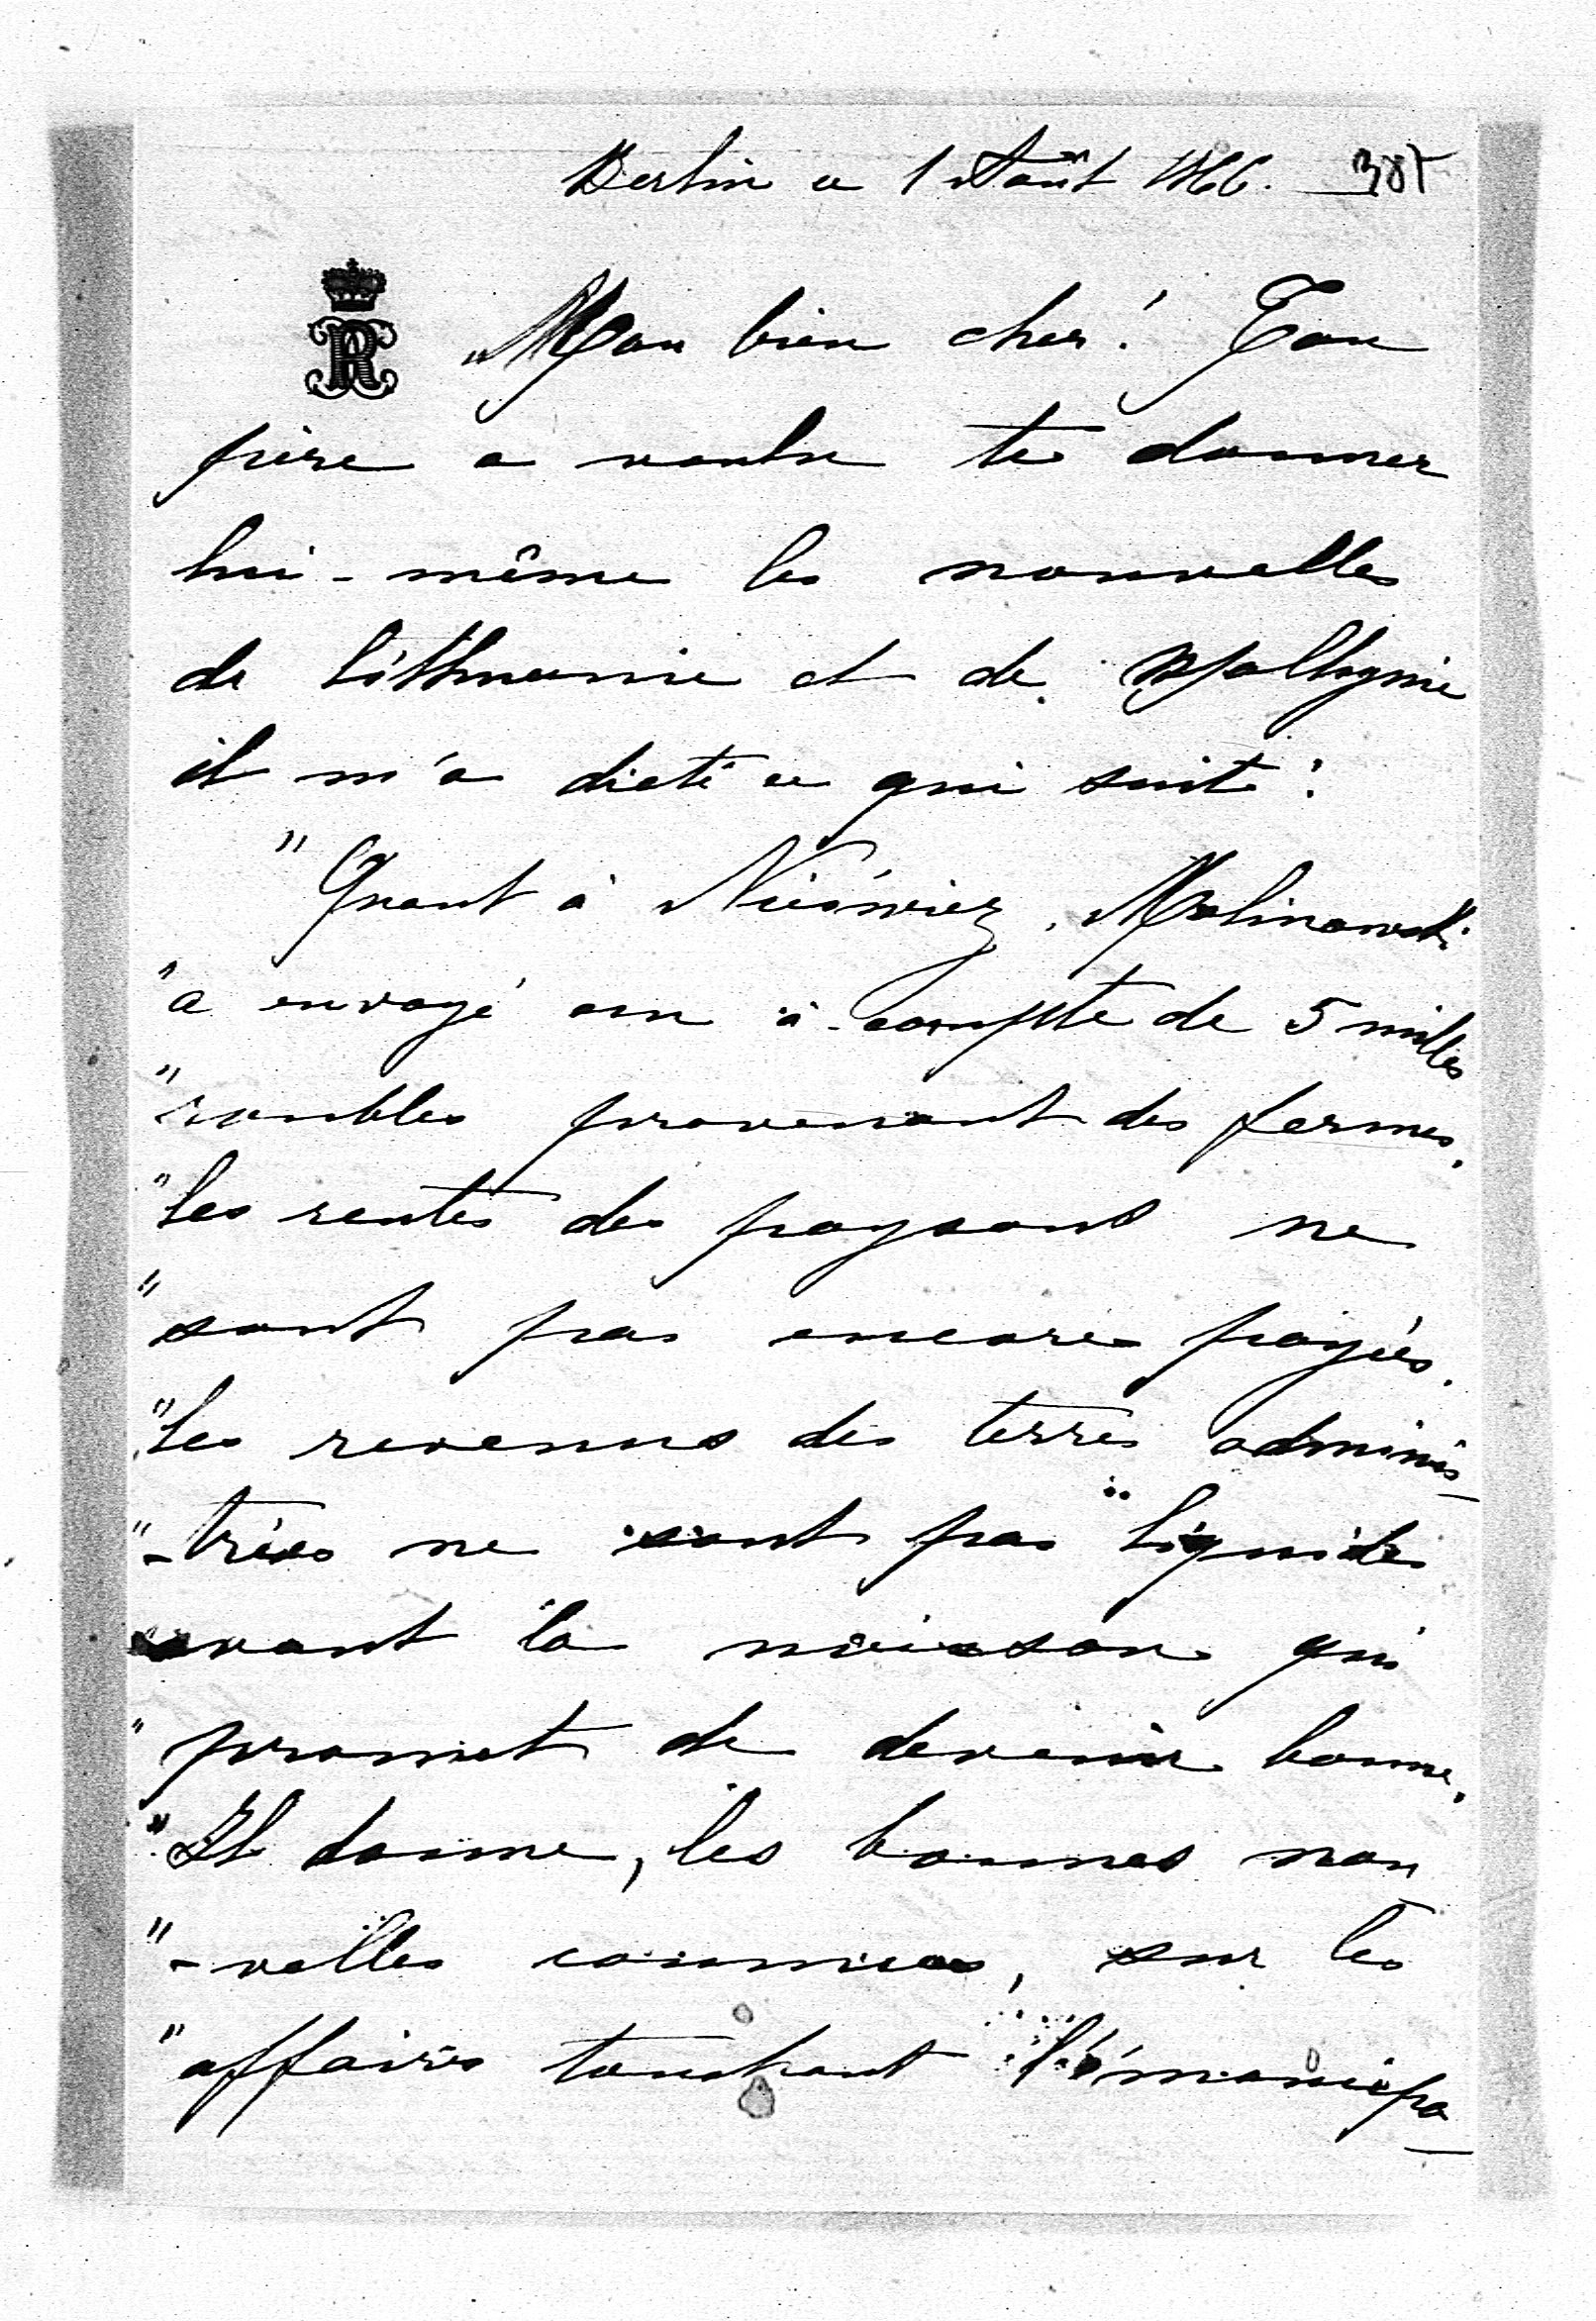 Berlin ce 1 Août 1866. 385
R
Mon bien cher! Ton
frère a voulu te donner
lui-même les nouvelles
de Lithuanie et de Wolhynie
il m'a dicté ce qui suit:
"Quant à Nieśwież, Malinowski
"a envoyé un à-compte de 5 milles
"roubles provenant des fermes.
"Les rentes des paysans ne
"sont pas encore payées.
"Les revenus des terres adminis-
"-trées ne sont pas liquides
avant la moisson qui
"promet de devenir bonne.
"Il donne, les bonnes nou-
"-velles connues, sur les
"affaires touchant l'émancipa-